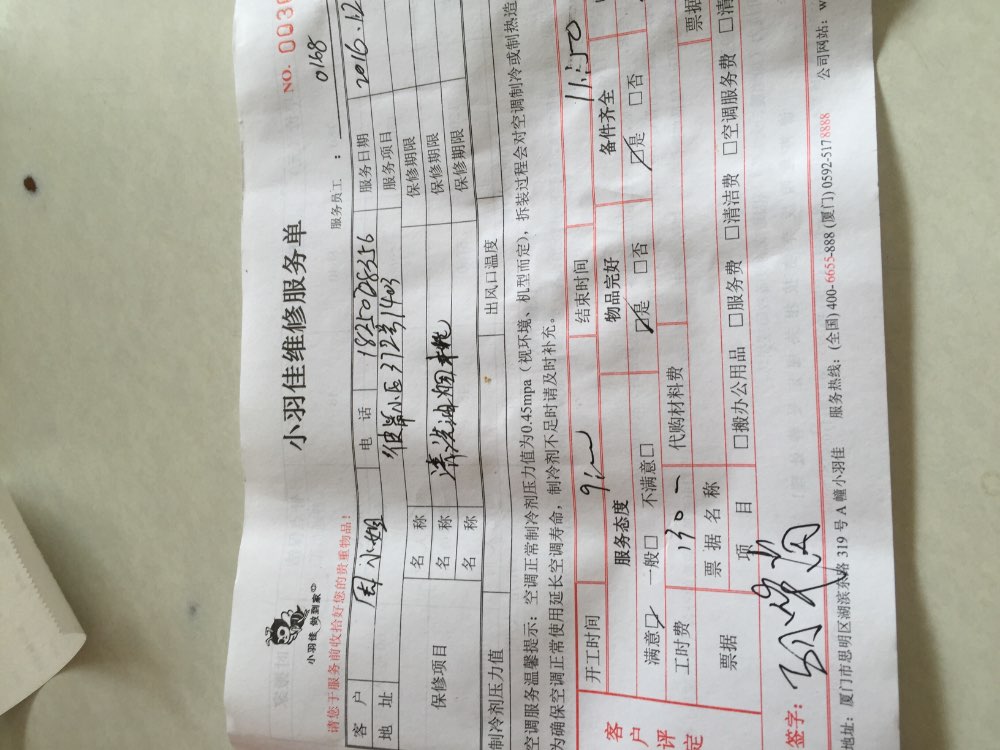 小羽佳 做到家
小羽佳维修服务单
NO. 003
请您于服务前收拾好您的贵重物品!
服务员工: 0168
客户 周小姐 电话 18250028356 服务日期 2016.12
地址 372号1403 服务项目
保修项目 名称 保修期限
名称 清洗油烟机 保修期限
名称 保修期限
制冷剂压力值 出风口温度
空调服务温馨提示:空调正常制冷剂压力值为0.45mpa(视环境、机型而定),拆装过程会对空调制冷或制热造
为确保空调正常使用延长空调寿命,制冷剂不足时请及时补充。
客户评定
开工时间 结束时间 11:50
服务态度 物品完好 备件齐全
满意□ 一般□ 不满意□ □是 □否 □是 □否
工时费 130 代购材料费 票据
票据 票据名称
项目 □搬办公用品 □服务费 □清洁费 □空调服务费 □清
签字:
地址:厦门市思明区湖滨东路 319 号 A 幢小羽佳 服务热线:(全国) 400-6655-888 (厦门) 0592-5178888 公司网站:w